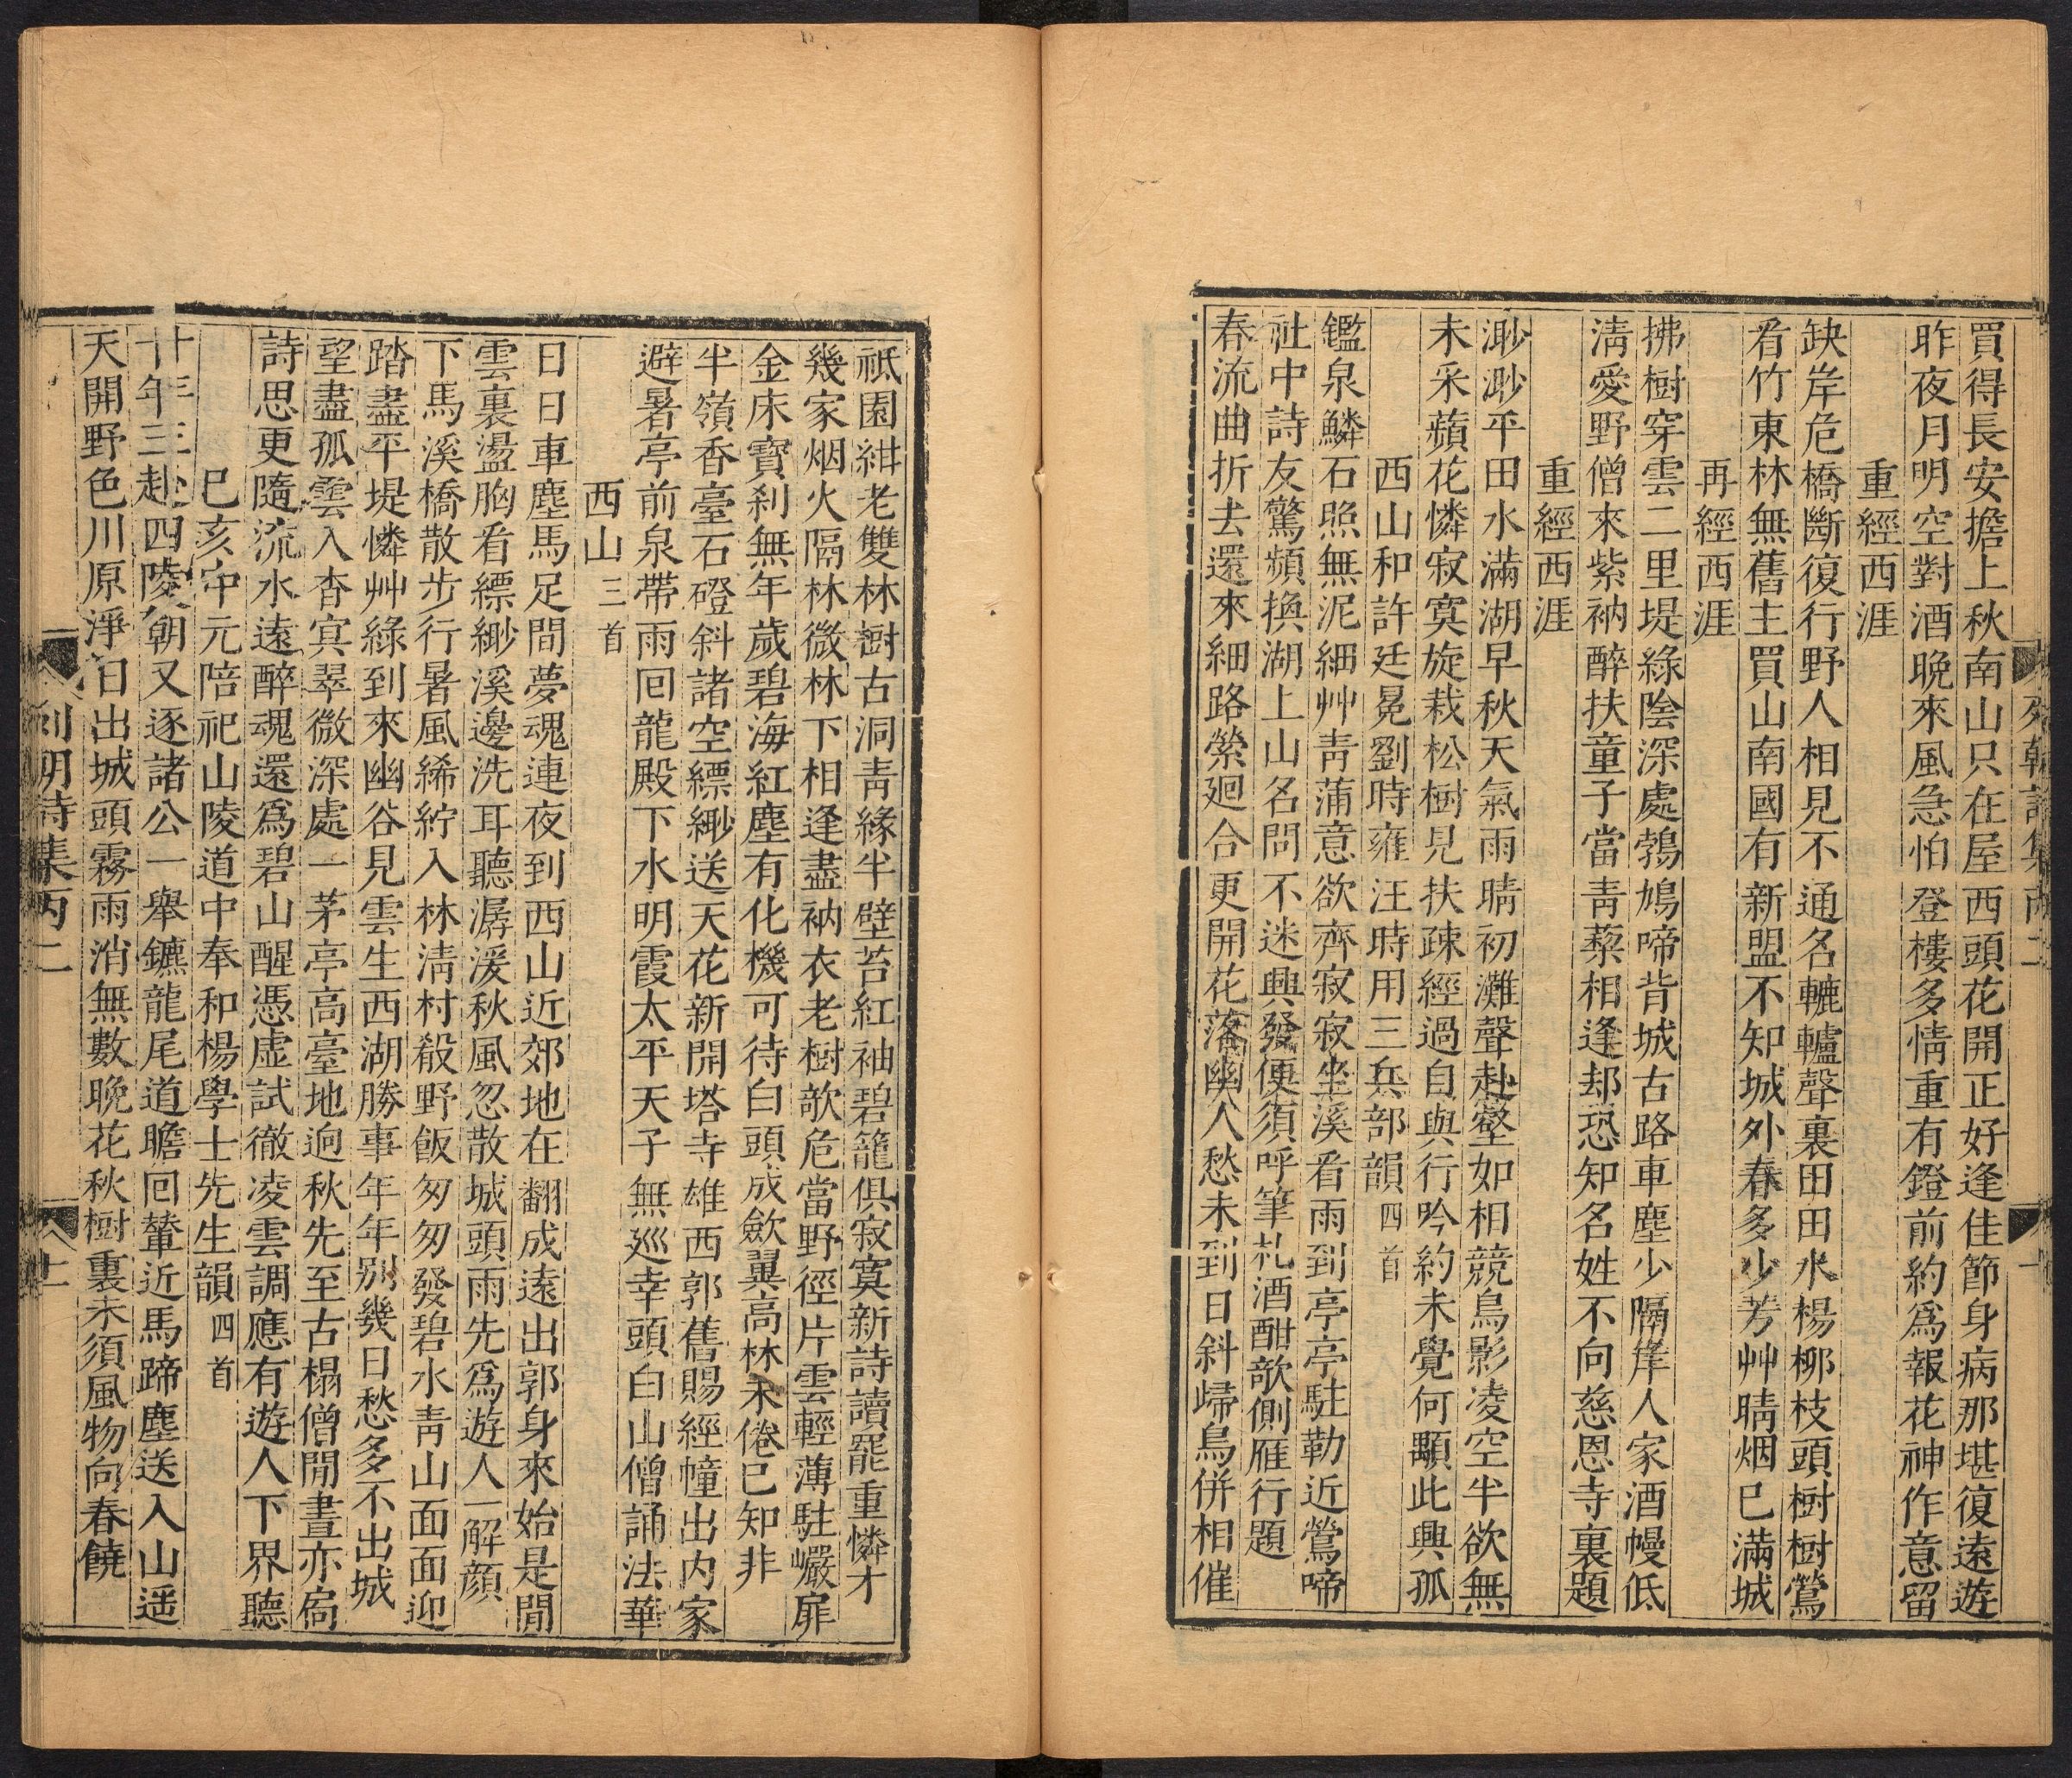 買得長安擔上秋南山只在屋西頭花開正好逢佳節身病那堪復遠遊
昨夜月明空對酒晚來風急怕登樓多情重有鐙前約爲報花神作意留
重經西涯
缺岸危橋斷復行野人相見不通名轆轤聲裏田田水楊柳枝頭樹樹鶯
看竹東林無舊主買山南國有新盟不知城外春多少芳艸晴烟已滿城
再經西涯
拂樹穿雲二里堤綠陰深處鵓鳩啼背城古路車塵少隔岸人家酒幔低
淸愛野僧來紫衲醉扶童子當靑藜相逢却恐知名姓不向慈恩寺裏題
重經西涯
渺渺平田水滿湖早秋天氣雨晴初灘聲赴壑如相競鳥影凌空半欲無
未采蘋花憐寂寞旋栽松樹見扶疎經過自與行吟約未覺何顒此興孤
西山和許廷冕劉時雍汪時用三兵部韻四首
鑑泉鱗石照無泥細艸靑蒲意欲齊寂寂坐溪看雨到亭亭駐勒近鶯啼
社中詩友驚頻換湖上山名問不迷興發便須呼筆札酒酣歌側雁行題
春流曲折去還來細路縈廻合更開花落幽人愁未到日斜歸鳥併相催
祗園紺老雙林樹古洞靑緣半壁苔紅袖碧籠俱寂寞新詩讀罷重憐才
幾家烟火隔林微林下相逢盡衲衣老樹欹危當野徑片雲輕薄駐巖扉
金床寶刹無年歲碧海紅塵有化機可待白頭成斂翼高林未倦已知非
半嶺香臺石磴斜諸空縹緲送天花新開塔寺雄西郭舊賜經幢出内家
避暑亭前泉帶雨回龍殿下水明霞太平天子無廵幸頭白山僧誦法華
西山三首
日日車塵馬足間夢魂連夜到西山近郊地在翻成遠出郭身來始是閒
雲裏盪胸看縹緲溪邊洗耳聽潺湲秋風忽散城頭雨先爲遊人一解顔
下馬溪橋散步行暑風絺紵入林淸村殽野飯匆匆發碧水靑山面面迎
踏盡平堤憐艸綠到來幽谷見雲生西湖勝事年年別幾日愁多不出城
望盡孤雲入杳冥翠微深處一茅亭高臺地逈秋先至古榻僧閒晝亦扃
詩思更隨流水遠醉魂還爲碧山醒憑虛試徹凌雲調應有遊人下界聽
己亥中元陪祀山陵道中奉和楊學士先生韻四首
十年三赴四陵朝又逐諸公一舉鑣龍尾道瞻回輦近馬蹄塵送入山遥
天開野色川原淨日出城頭霧雨消無數晚花秋樹裏未須風物向春饒
列朝詩集丙二